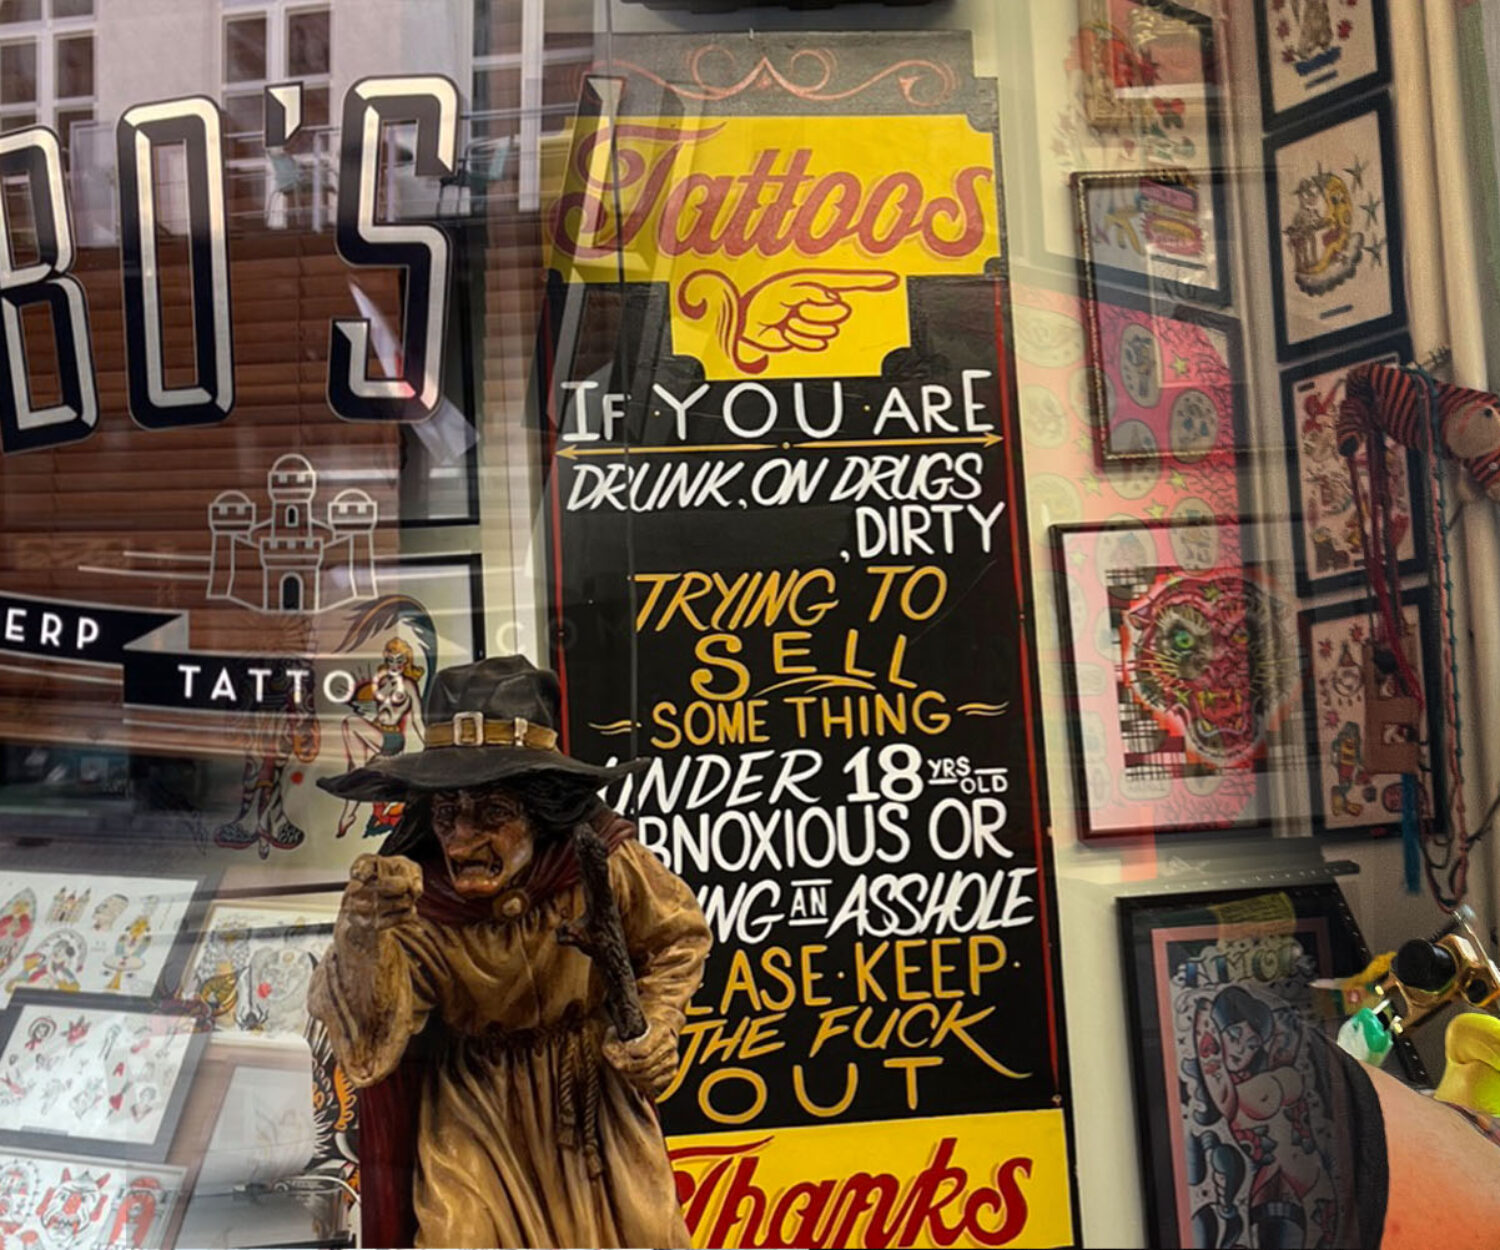 BO'S
ERP
TATTO
Tattoos
IF YOU ARE
DRUNK, ON DRUGS
, DIRTY
TRYING TO
SELL
SOME THING
UNDER 18 YRS OLD
BNOXIOUS OR
ING AN ASSHOLE
EASE KEEP
THE FUCK
OUT
Thanks